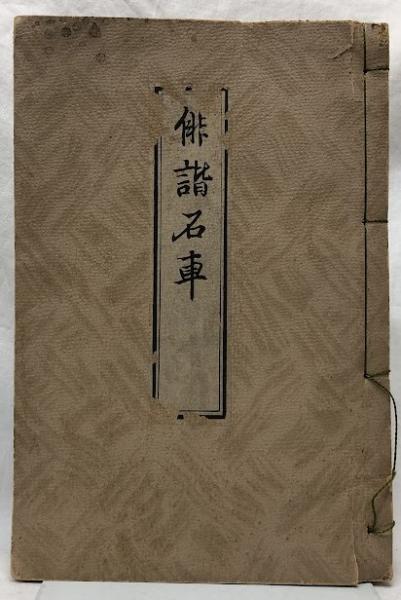 俳諧石車